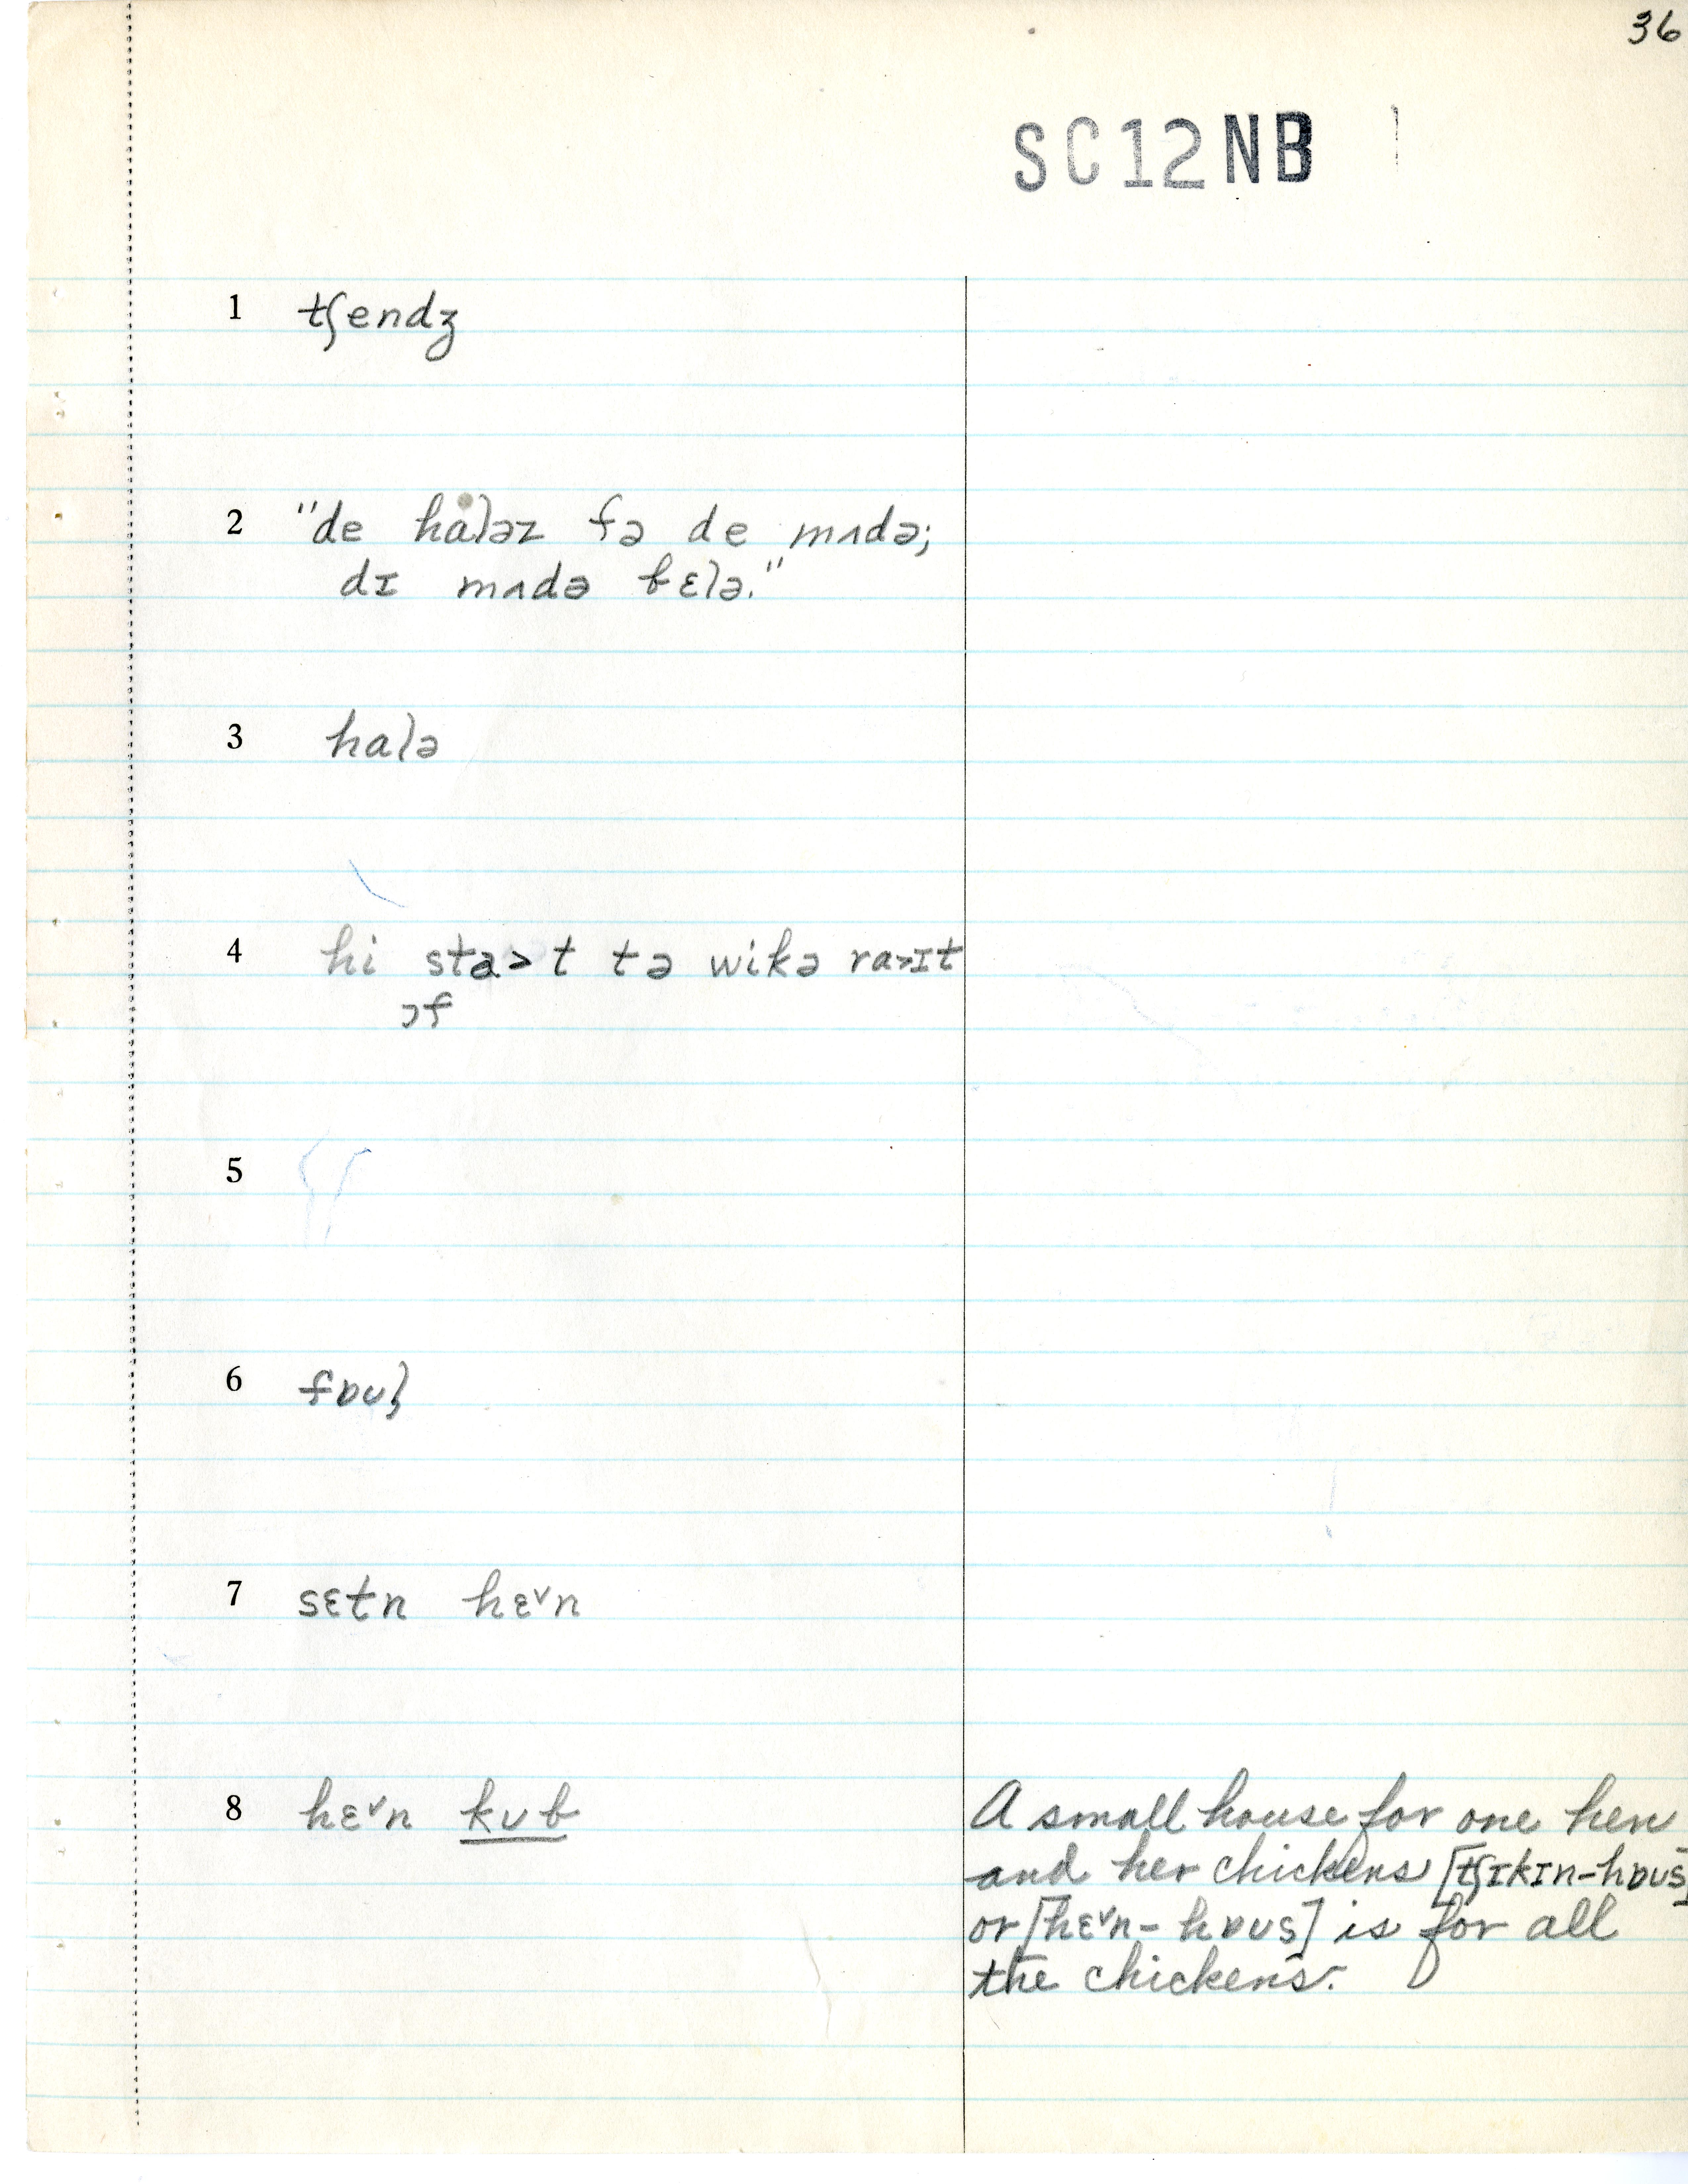 36
SC12NB
1 tʃendʒ
2 "de haləz fə de mʌdə;
dɪ mʌdə bɛlə."
3 halə
4 hi sta>t tə wikə ra>ɪt
ɔf
5
6 fɒʊl
7 sɛtn hɛˇn
8 hɛˇn kʊb
A small house for one hen
and her chickens [tʃɪkɪn-hɒʊs]
or [hɛˇn-hɒʊs] is for all
the chickens.